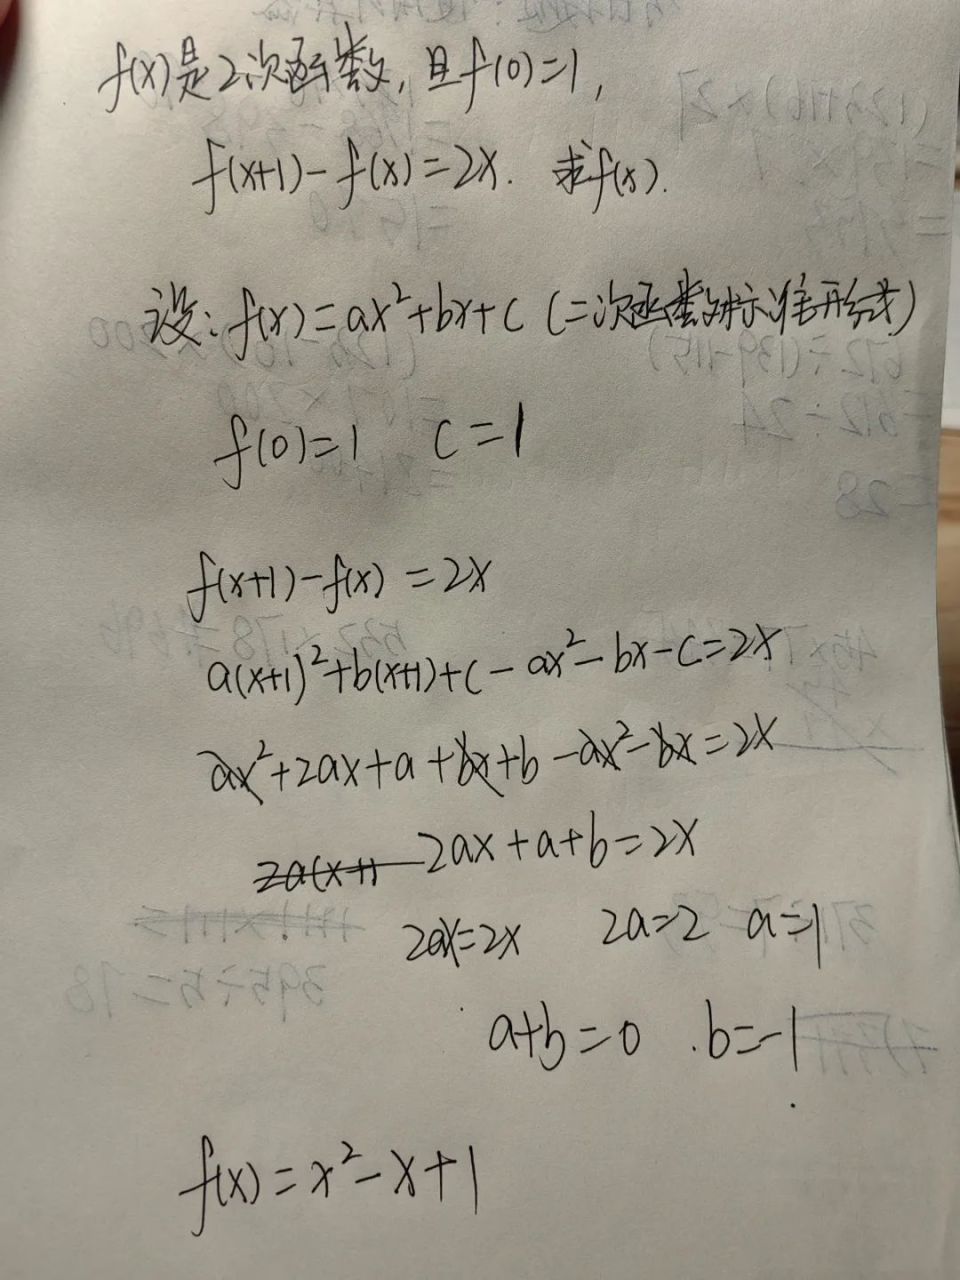 f(x)是2次函数,且f(0)=1,
f(x+1)-f(x)=2x. 求f(x).
设:f(x)=ax²+bx+c (二次函数标准形式)
f(0)=1 c=1
f(x+1)-f(x)=2x
a(x+1)²+b(x+1)+c-ax²-bx-c=2x
ax²+2ax+a+bx+b-ax²-bx=2x
2a(x+1) 2ax+a+b=2x
2ax=2x 2a=2 a=1
a+b=0 b=-1
f(x)=x²-x+1